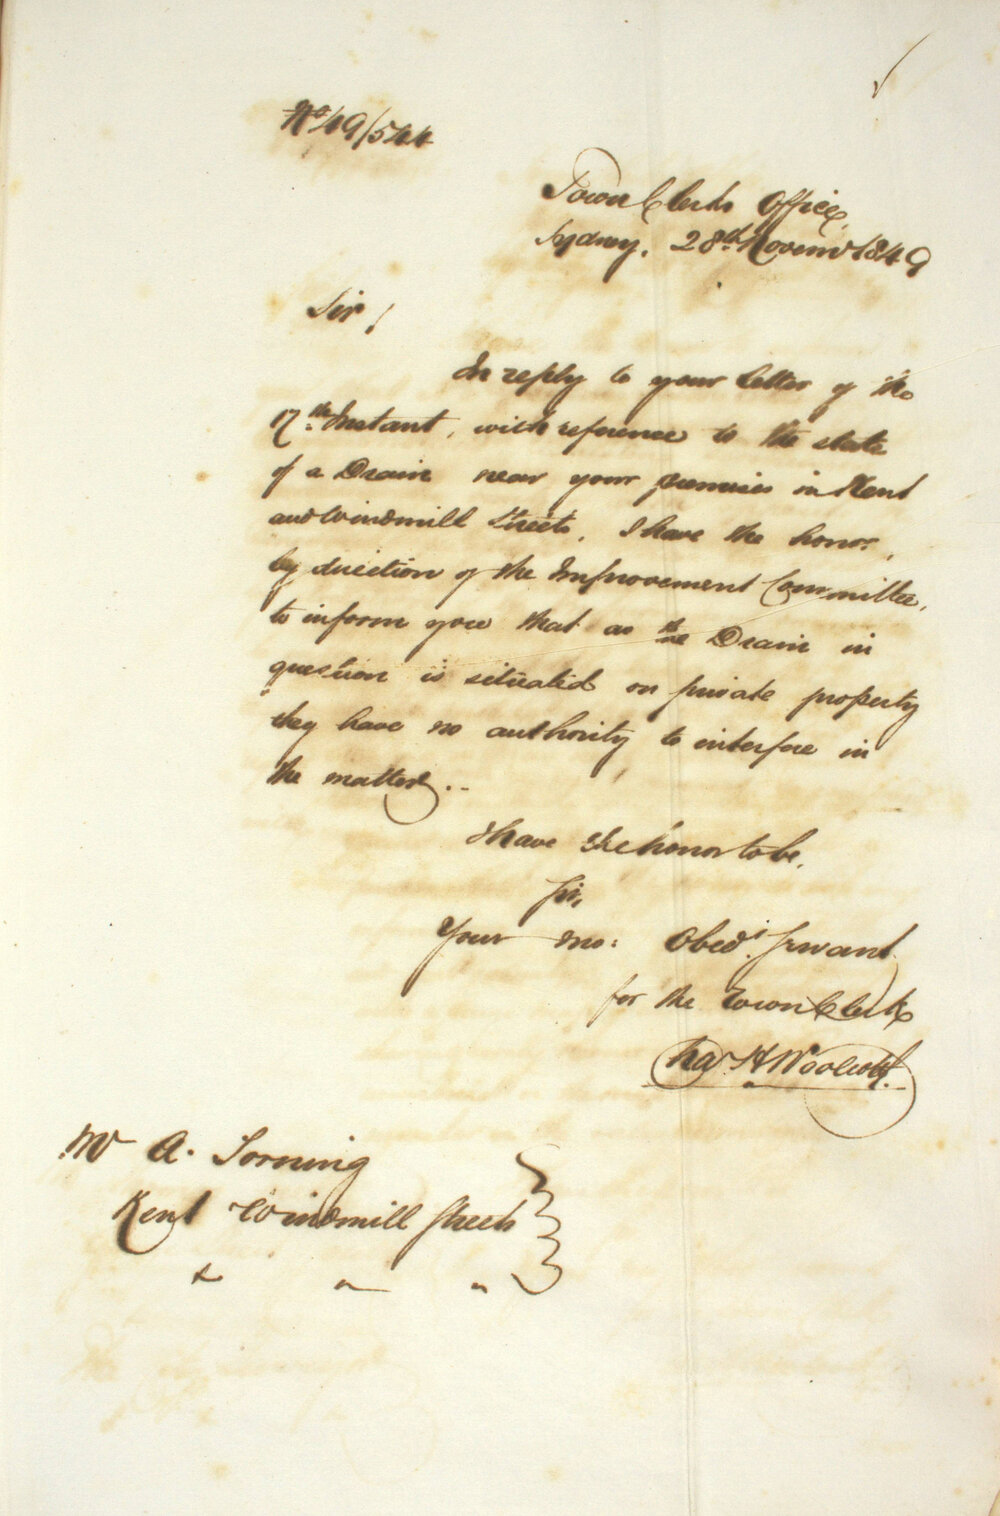 No 49/544
Town Clerks Office,
Sydney. 28th Novemr 1849
Sir!
In reply to your letter of the
17th Instant, with reference to the state
of a Drain near your premises in Kent
and Windmill Streets, I have the honor,
by direction of the Improvement Committee,
to inform you that as the Drain in
question is situated on private property
they have no authority to interfere in
the matter..
I have the honor to be,
Sir,
Your mo: Obedt. Servant
for the Town Clerk
Chas H Woolcott
Mr A.
Kent Windmill Streets